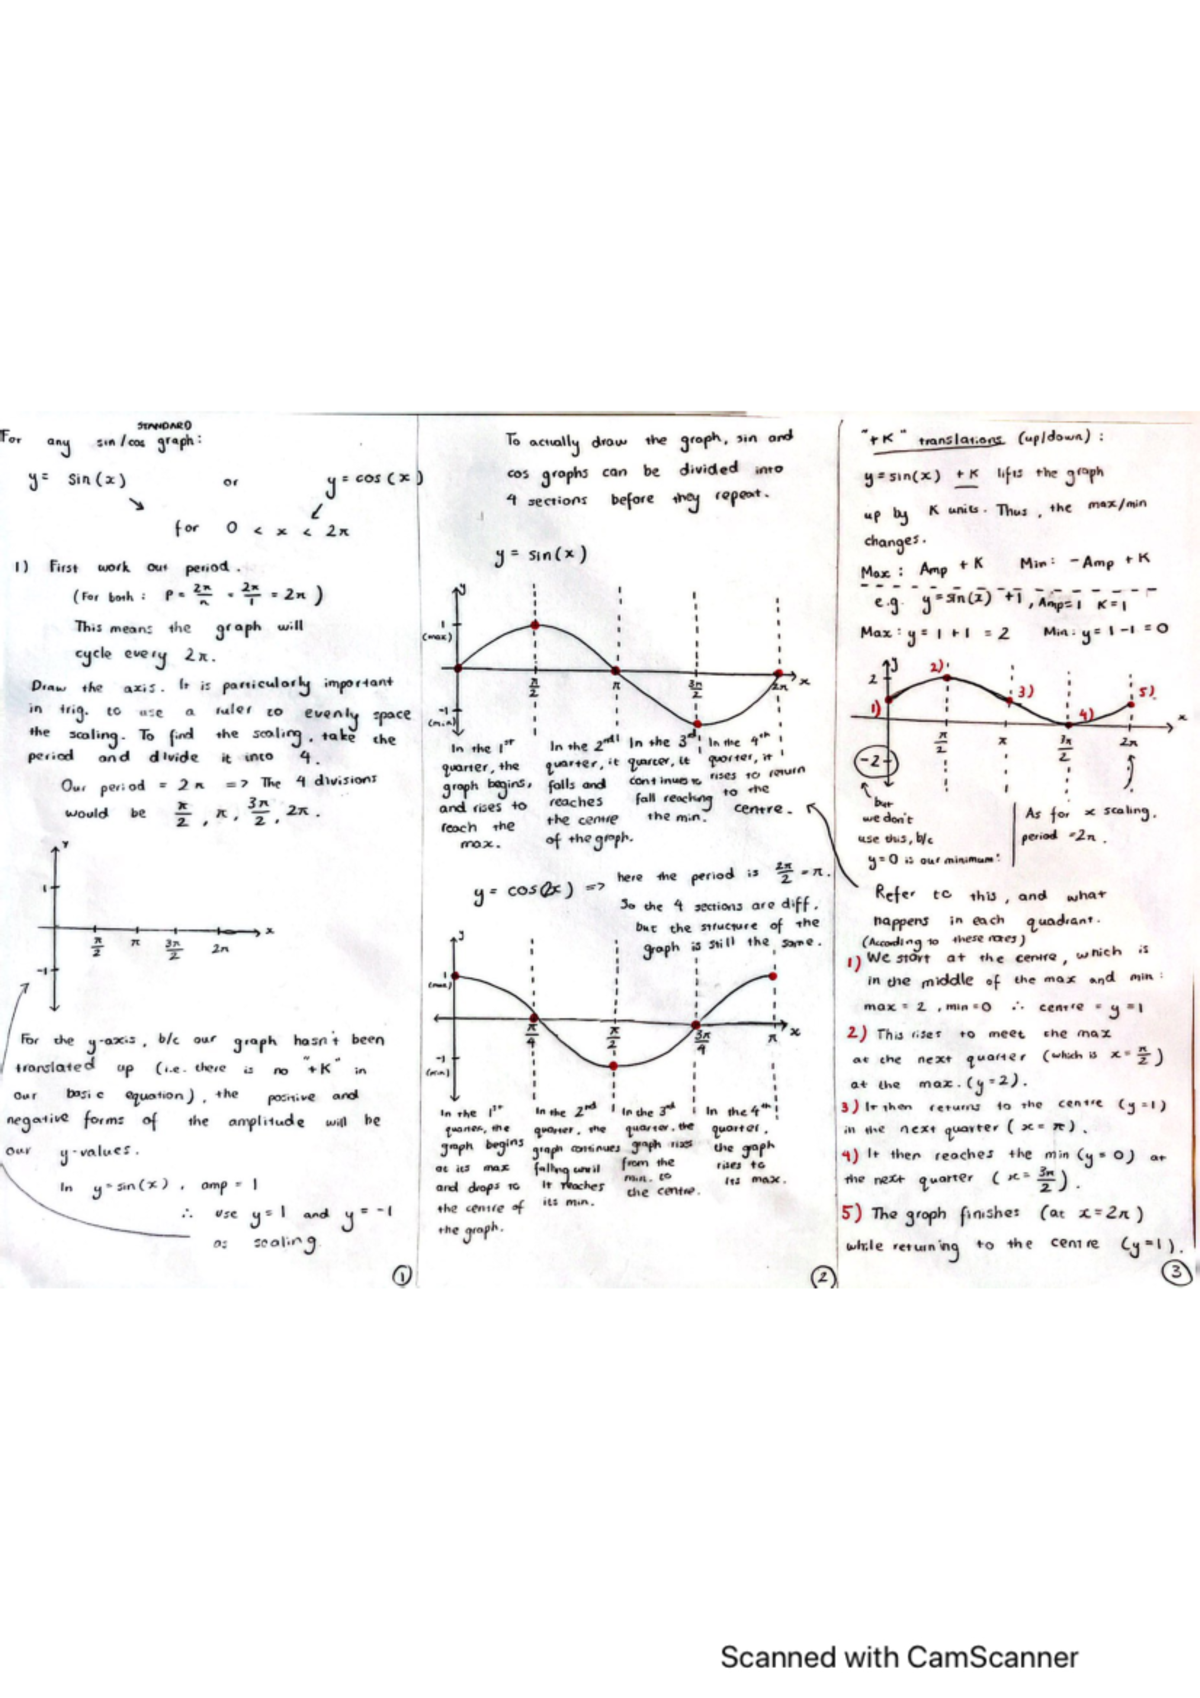 STANDARD
For any sin/cos graph:
y= sin(x) or y=cos(x)
for 0 < x < 2π
1) First work out period.
(For both: P = 2π/n = 2π/1 = 2π)
This means the graph will
cycle every 2π.
Draw the axis. It is particularly important
in trig. to use a ruler to evenly space
the scaling. To find the scaling, take the
period and divide it into 4.
Our period = 2π => The 4 divisions
would be π/2, π, 3π/2, 2π.
y
1
π/2 π 3π/2 2π x
-1
For the y-axis, b/c our graph hasn't been
translated up (i.e. there is no "+K" in
our basic equation), the positive and
negative forms of the amplitude will be
our y-values.
In y=sin(x), amp = 1
∴ use y=1 and y=-1
as scaling.
1
To actually draw the graph, sin and
cos graphs can be divided into
4 sections before they repeat.
y = sin(x)
y
1
(max)
π/2 π 3π/2 2π x
-1
(min)
In the 1st
quarter, the
graph begins,
and rises to
reach the
max.
In the 2nd
quarter, it
falls and
reaches
the centre
of the graph.
In the 3rd
quarter, it
continues to
fall reaching
the min.
In the 4th
quarter, it
rises to return
to the
centre.
y = cos(2x) => here the period is 2π/2 = π.
So the 4 sections are diff.
but the structure of the
graph is still the same.
y
1
(max)
π/4 π/2 3π/4 π x
-1
(min)
In the 1st
quarter, the
graph begins
at its max
and drops to
the centre of
the graph.
In the 2nd
quarter, the
graph continues
falling until
it reaches
its min.
In the 3rd
quarter, the
graph rises
from the
min. to
the centre.
In the 4th
quarter,
the gaph
rises to
its max.
2
"+K" translations (up/down):
y=sin(x) +K lifts the graph
up by K units. Thus, the max/min
changes.
Max: Amp +K Min: -Amp +K
e.g. y=sin(x) +1, Amp=1 K=1
Max: y = 1+1 = 2 Min: y= 1-1 = 0
y
2
1) 2) 3) 4) 5)
x
π/2 π 3π/2 2π
-2
but
we don't
use this, b/c
y=0 is our minimum!
As for x scaling,
period =2π.
Refer to this, and what
happens in each quadrant.
(According to these notes)
1) We start at the centre, which is
in the middle of the max and min:
max = 2, min=0 ∴ centre = y=1
2) This rises to meet the max
at the next quarter (which is x=π/2)
at the max. (y=2).
3) It then returns to the centre (y=1)
in the next quarter (x=π).
4) It then reaches the min (y=0) at
the next quarter (x=3π/2).
5) The graph finishes (at x=2π)
while returning to the centre (y=1).
3
Scanned with CamScanner